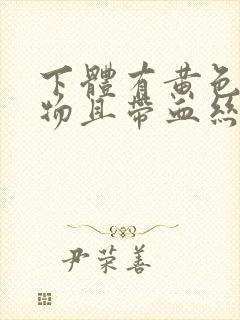 下體有黃色
物且帶血絲
尹荣善